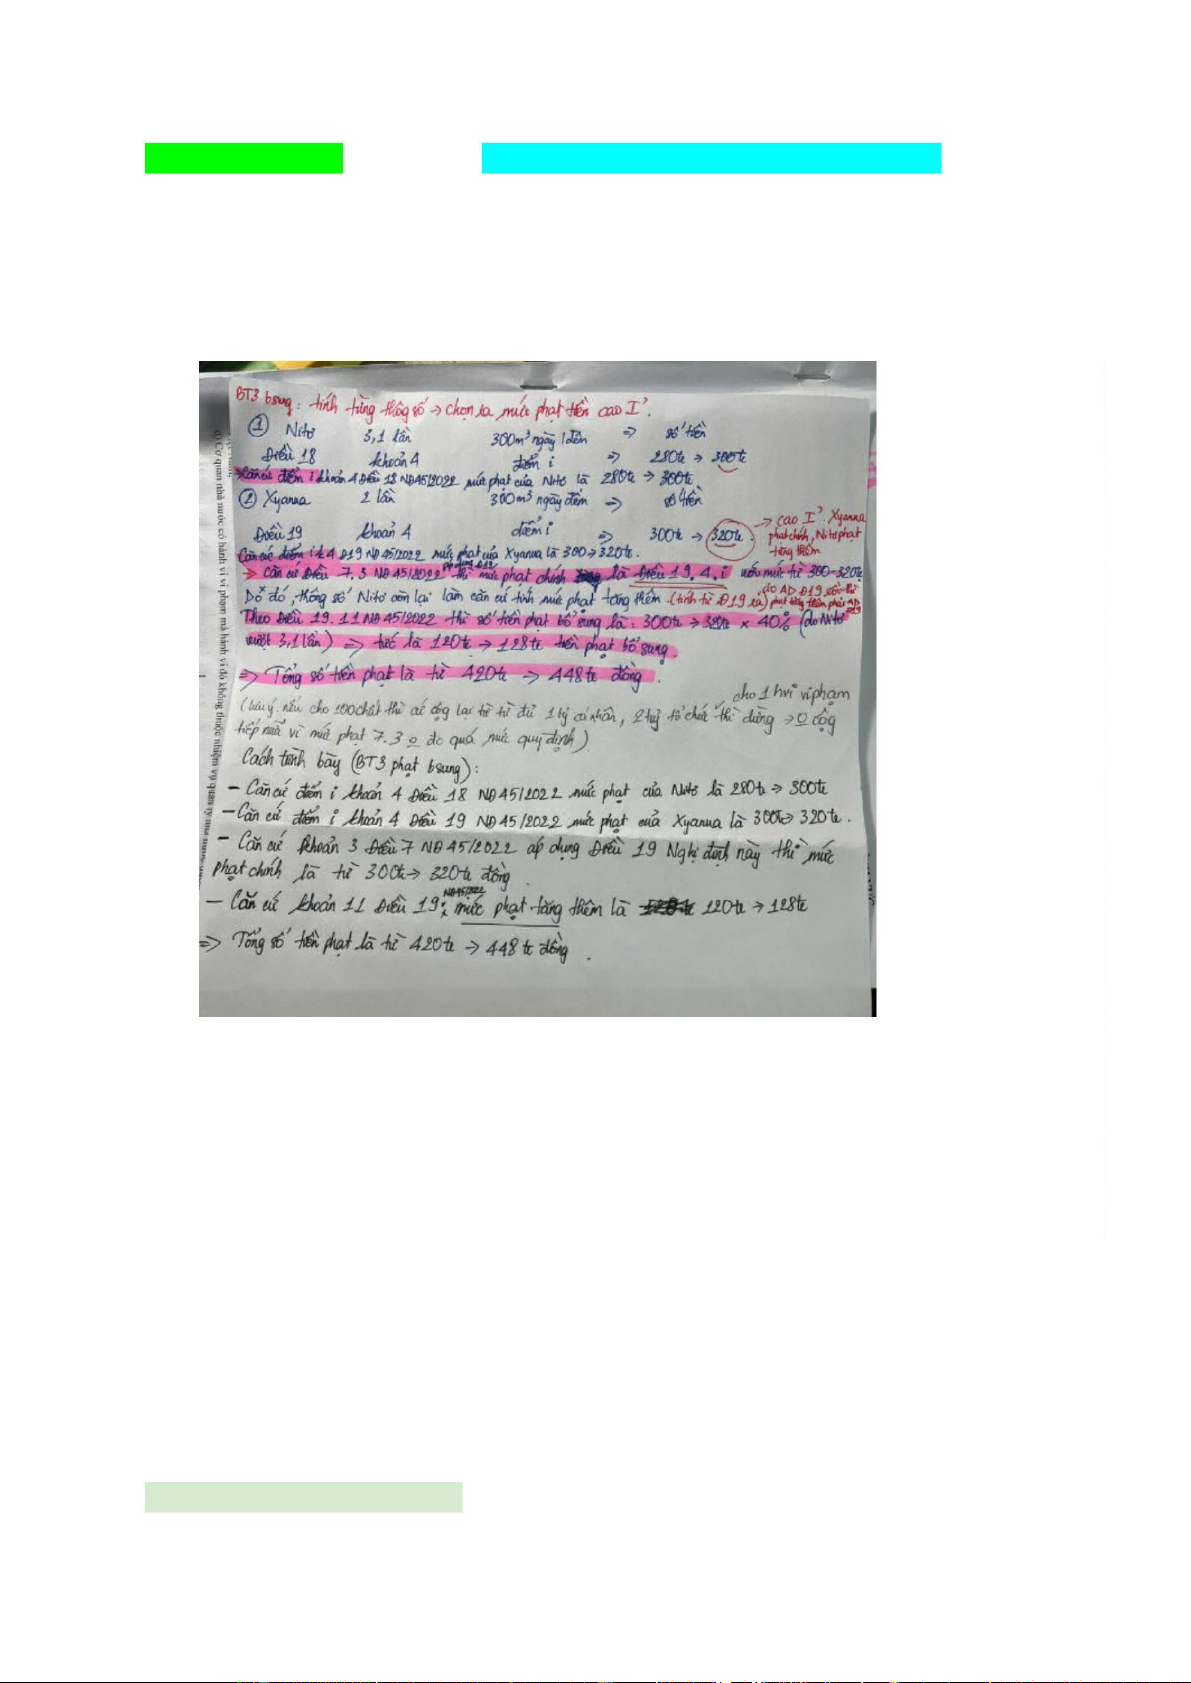 BT3 bsung: tính từng thôg số → chọn ra mức phạt tiền cao I'.
① Nitơ 3,1 lần 300m³ ngày/đêm => số tiền
Điều 18 khoản 4 điểm i => 280tr → 300tr
Căn cứ điểm i khoản 4 Điều 18 NĐ45/2022 mức phạt của Nitơ là 280tr → 300tr
② Xyanna 2 lần 300m³ ngày đêm => số tiền
Điều 19 khoản 4 điểm i => 300tr → 320tr.
→ cao I'. Xyanna
phạt chính, Nitơ phạt
tăng thêm
Căn cứ điểm i k4 Đ19 NĐ45/2022 mức phạt của Xyanna là 300→320tr.
→ Căn cứ Điều 7.3 NĐ45/2022 áp dụng Đ19 thì mức phạt chính là Điều 19.4.i với mức từ 300-320tr
Do đó, thông số Nitơ còn lại làm căn cứ tính mức phạt tăng thêm (tính từ Đ19 ra)
phạt tăng thêm phải AD Đ19
Theo Điều 19.11 NĐ45/2022 thì số tiền phạt bổ sung là: 300tr → 320tr x 40% (do Nitơ
vượt 3,1 lần) => tức là 120tr → 128tr tiền phạt bổ sung.
=> Tổng số tiền phạt là từ 420tr → 448tr đồng.
cho 1 hvi vi phạm
(lưu ý: nếu cho 100chất thì cứ cộg lại từ từ đủ 1 tỷ cá nhân, 2 tuỷ tổ chức thì dừng → 0 cộg
tiếp nữa vì mức phạt 7.3 0 đc quá mức quy định)
Cách trình bày (BT3 phạt bsung):
- Căn cứ điểm i khoản 4 Điều 18 NĐ45/2022 mức phạt của Nitơ là 280tr → 300tr
- Căn cứ điểm i khoản 4 Điều 19 NĐ45/2022 mức phạt của Xyanna là 300tr → 320tr.
- Căn cứ khoản 3 Điều 7 NĐ45/2022 áp dụng Điều 19 Nghị định này thì mức
phạt chính là từ 300tr → 320tr đồng.
- Căn cứ khoản 11 Điều 19 NĐ45/2022: mức phạt tăng thêm là 120tr → 128tr
=> Tổng số tiền phạt là từ 420tr → 448tr đồng.
d) Cơ quan nhà nước có hành vi vi phạm mà hành vi đó không thuộc nhiệm vụ quản lý nhà nước